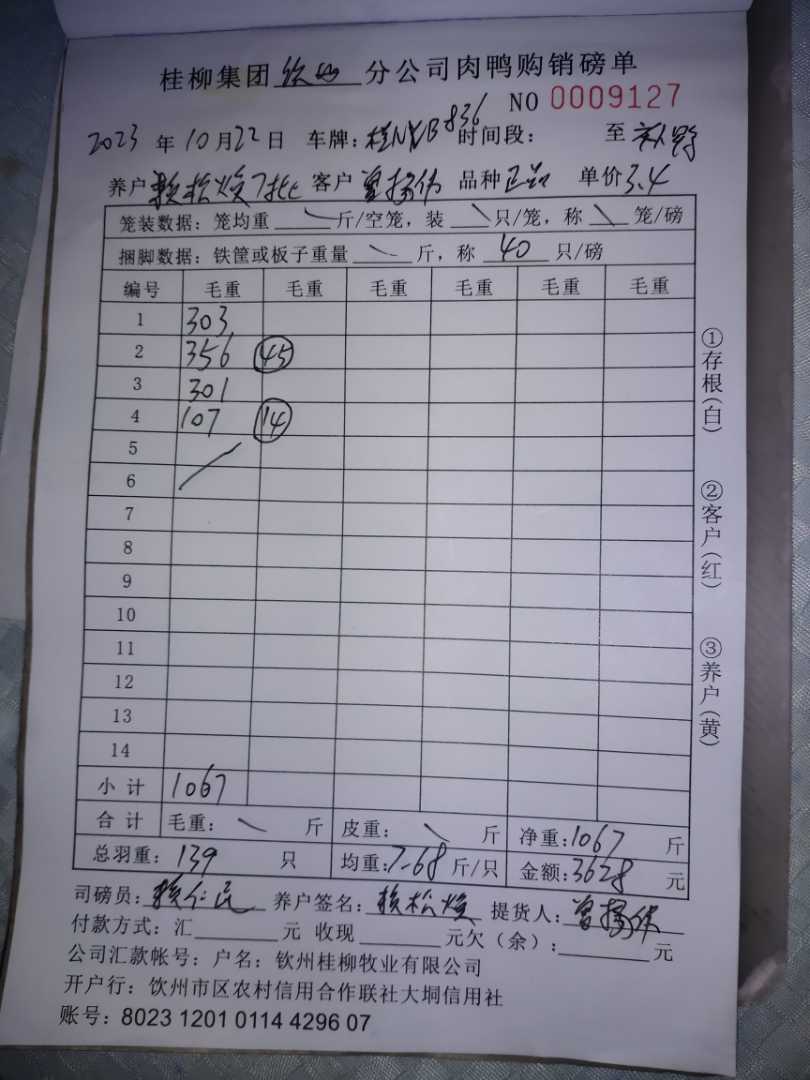 桂柳集团 钦州 分公司肉鸭购销磅单
NO 0009127
2023 年 10 月 22 日 车牌: 桂N 836 时间段: 至
养户 赖松焕 7批 客户 曾 伟 品种 正品 单价 3.4
笼装数据: 笼均重 \ 斤/空笼, 装 \ 只/笼, 称 \ 笼/磅
捆脚数据: 铁筐或板子重量 \ 斤, 称 40 只/磅
编号 毛重 毛重 毛重 毛重 毛重 毛重
1 303
2 356 45
3 301
4 107 14
5
6
7
8
9
10
11
12
13
14
小计 1067
合计 毛重: \ 斤 皮重: \ 斤 净重: 1067 斤
总羽重: 139 只 均重: 7-68 斤/只 金额: 3628 元
司磅员: 赖仁民 养户签名: 赖松焕 提货人: 曾 伟
付款方式: 汇 元 收现 元欠(余): 元
公司汇款帐号: 户名: 钦州桂柳牧业有限公司
开户行: 钦州市区农村信用合作联社大垌信用社
账号: 8023 1201 0114 4296 07
①存根(白)
②客户(红)
③养户(黄)